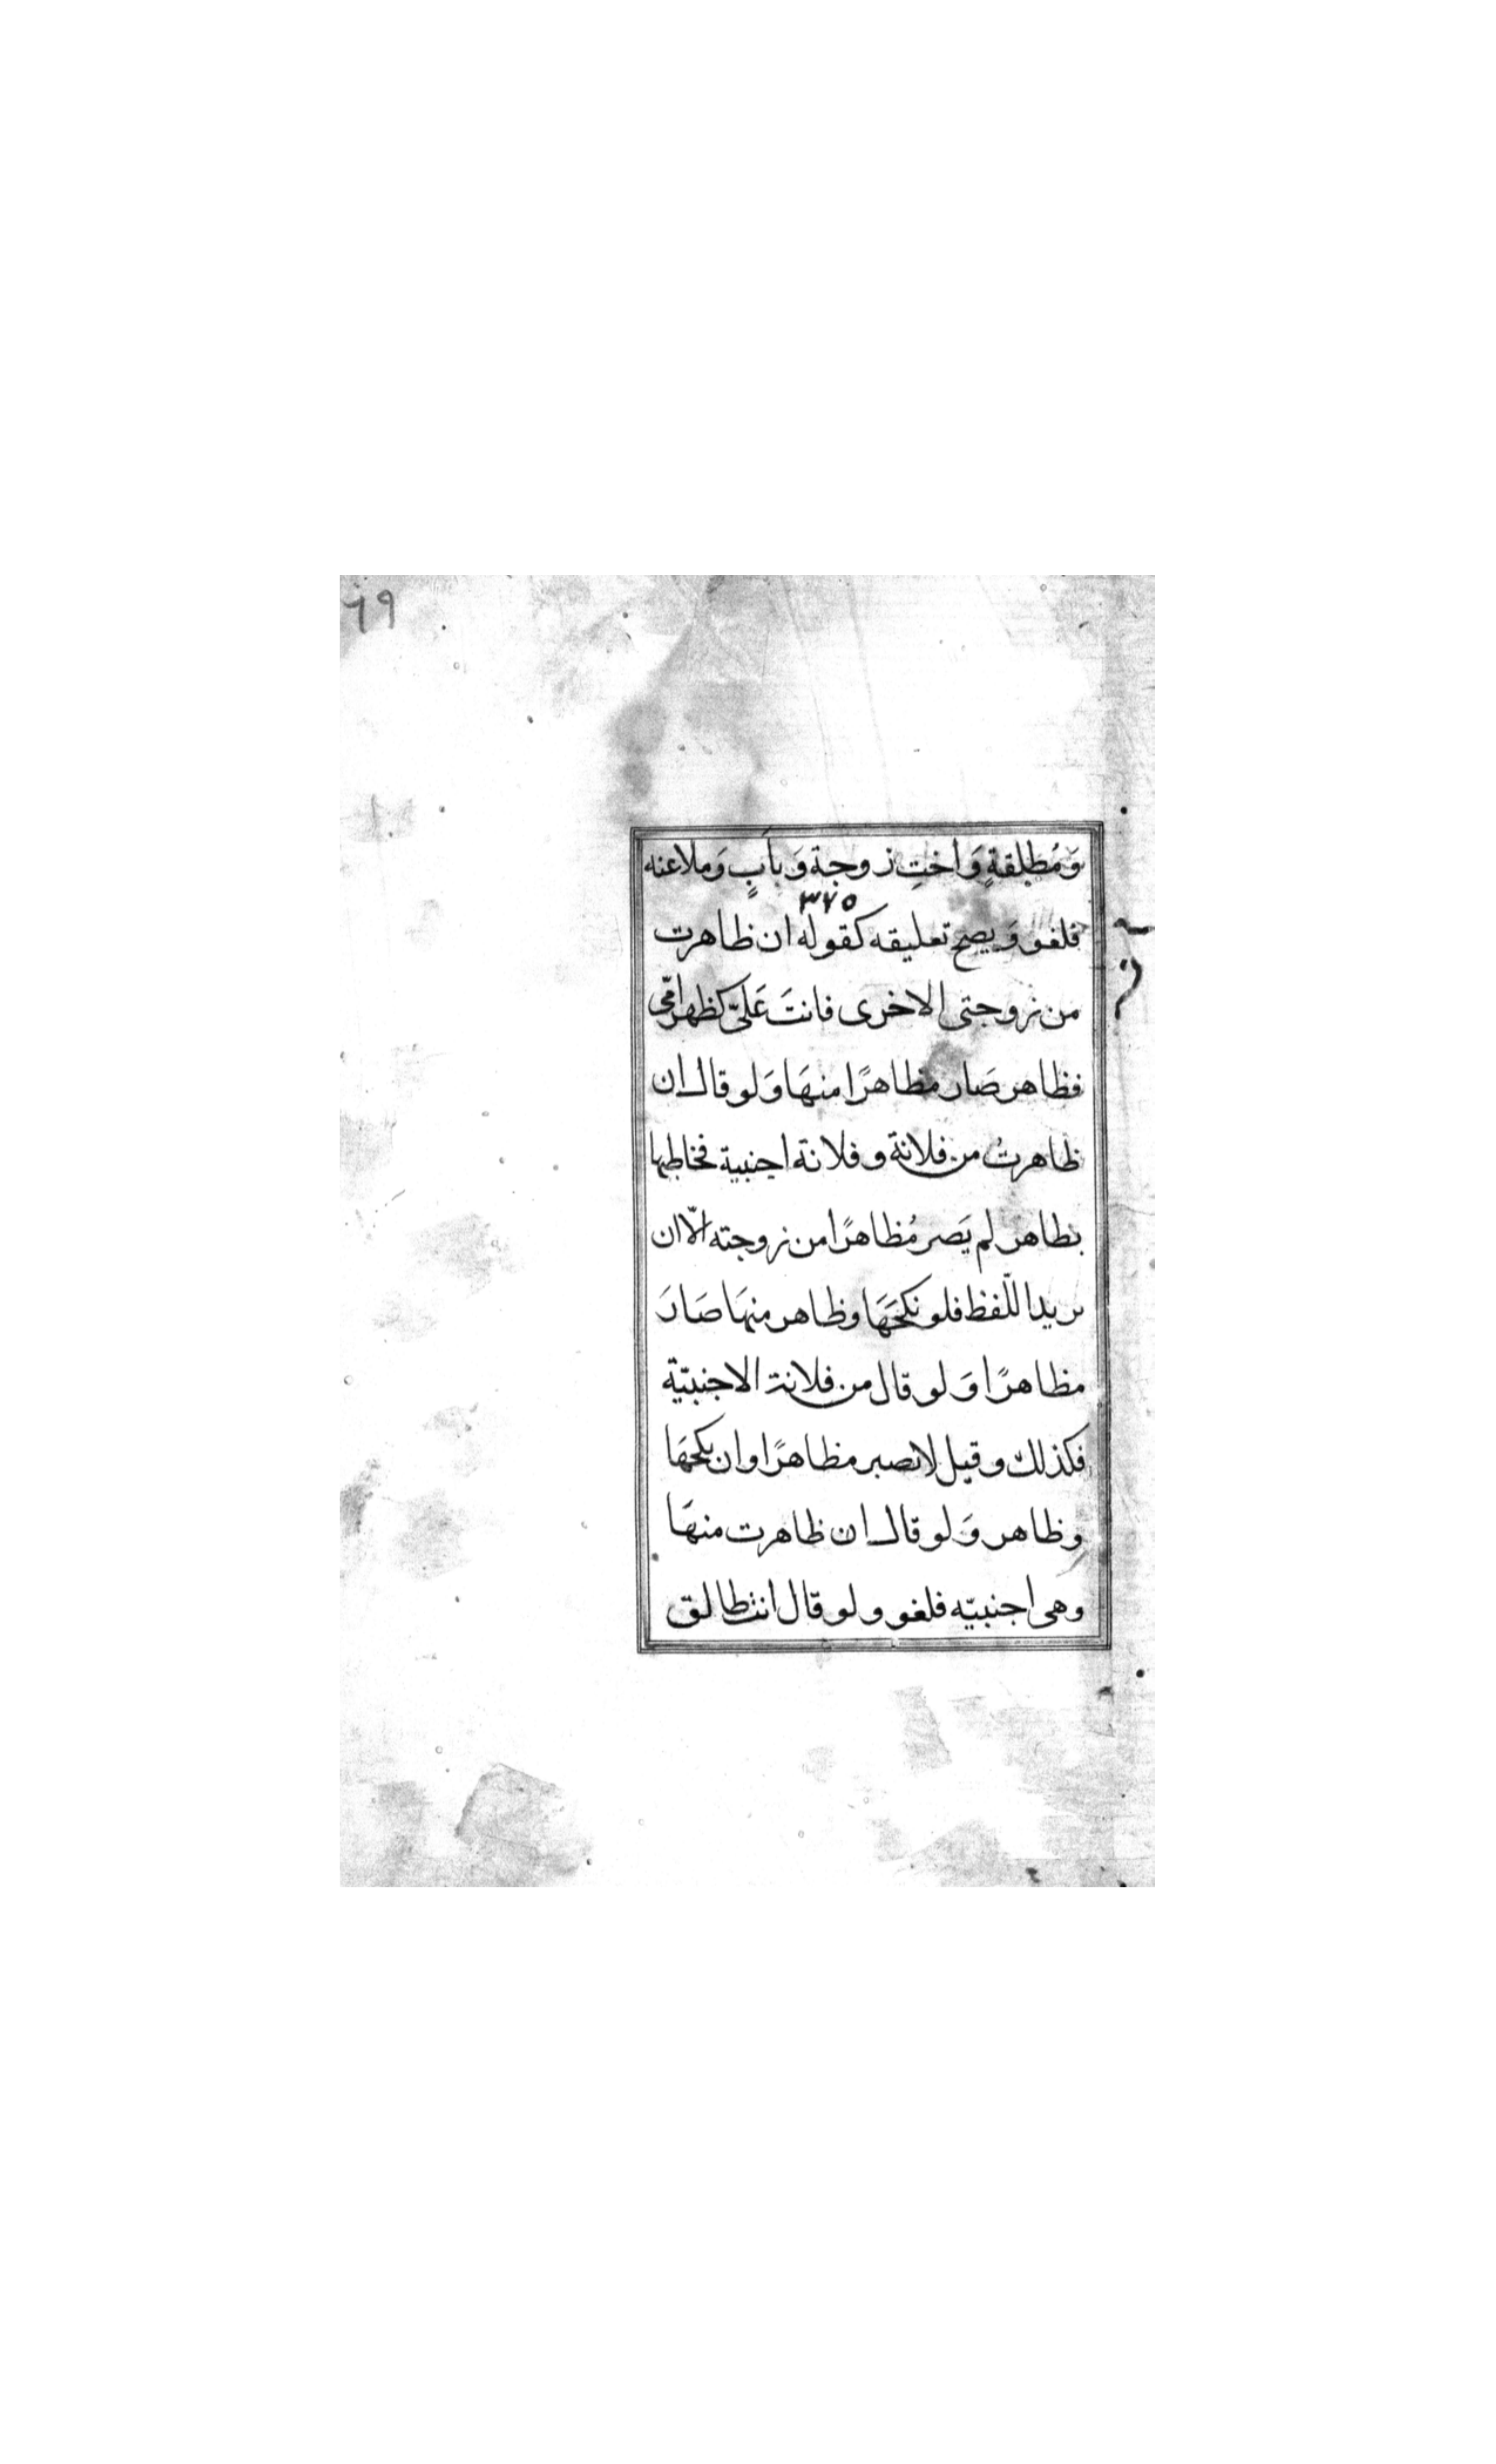 ٦٩
وَمُطلقةٍ وَاختِ زوجة وَبابٍ وَملاعنه
٣٧٥
فلغو وَيصح تعليقه كقوله ان ظاهرت
من زوجتى الاخرى فانتَ عَلىّ كظهر امّى
فظاهر صَار مظاهرًا منهَا وَلو قال ان
ظاهرتُ من فلانة و فلانة اجنبية فخاطبها
بظاهر لم يَصر مُظاهرًا من زوجته الّا ان
يريد اللّفظ فلو نكحَهَا وظاهر منهَا صَارَ
مظاهرًا وَلو قال من فلانة الاجنبيّة
فكذلك وقيل لا يصير مظاهرًا وان نكحهَا
وظاهر وَلو قال ان ظاهرت منهَا
وهى اجنبيّه فلغو ولو قال انت طالق